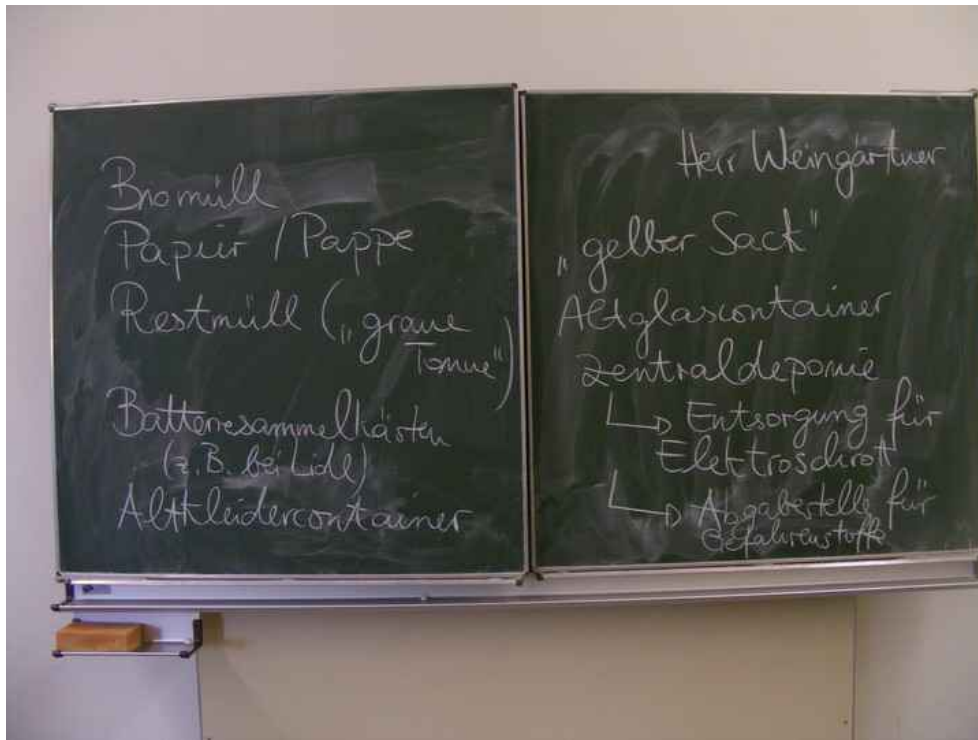 Biomüll
Papier / Pappe
Restmüll („graue
Tonne“)
Batteriesammelkästen
(z.B. bei Lidl)
Altkleidercontainer
Herr Weingärtner
„gelber Sack“
Altglascontainer
Zentraldeponie
↳ Entsorgung für
Elektroschrott
↳ Abgabestelle für
Gefahrenstoffe